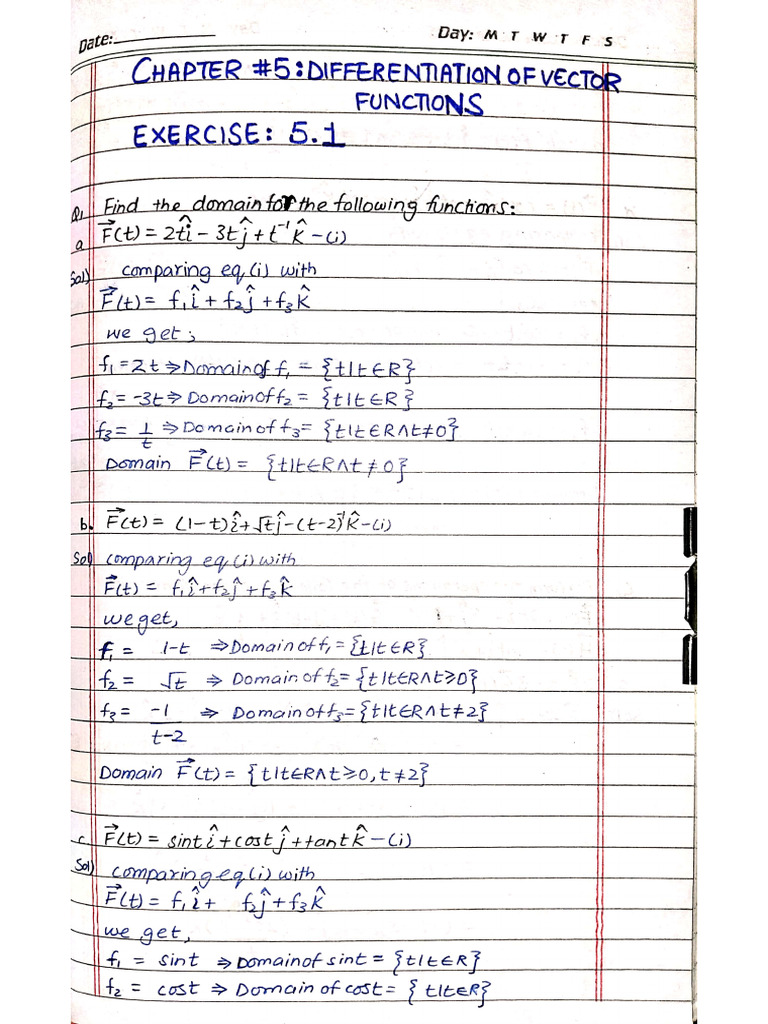 Date:
Day: M T W T F S
CHAPTER #5: DIFFERENTIATION OF VECTOR
FUNCTIONS
EXERCISE: 5.1
Q1 Find the domain for the following functions:
a F⃗(t) = 2tî - 3tĵ + t⁻¹k̂ -(i)
Sol) comparing eq (i) with
F⃗(t) = f₁î + f₂ĵ + f₃k̂
we get;
f₁ = 2t ⇒ Domain of f₁ = {t|t∈R}
f₂ = -3t ⇒ Domain of f₂ = {t|t∈R}
f₃ = 1/t ⇒ Domain of f₃ = {t|t∈R∧t≠0}
Domain F⃗(t) = {t|t∈R∧t≠0}
b. F⃗(t) = (1-t)î + √tĵ - (t-2)⁻¹k̂ -(i)
Sol) comparing eq (i) with
F⃗(t) = f₁î + f₂ĵ + f₃k̂
we get,
f₁ = 1-t ⇒ Domain of f₁ = {t|t∈R}
f₂ = √t ⇒ Domain of f₂ = {t|t∈R∧t≥0}
f₃ = -1/t-2 ⇒ Domain of f₃ = {t|t∈R∧t≠2}
Domain F⃗(t) = {t|t∈R∧t≥0, t≠2}
c. F⃗(t) = sint î + cost ĵ + tant k̂ -(i)
Sol) comparing eq (i) with
F⃗(t) = f₁î + f₂ĵ + f₃k̂
we get,
f₁ = sint ⇒ Domain of sint = {t|t∈R}
f₂ = cost ⇒ Domain of cost = {t|t∈R}